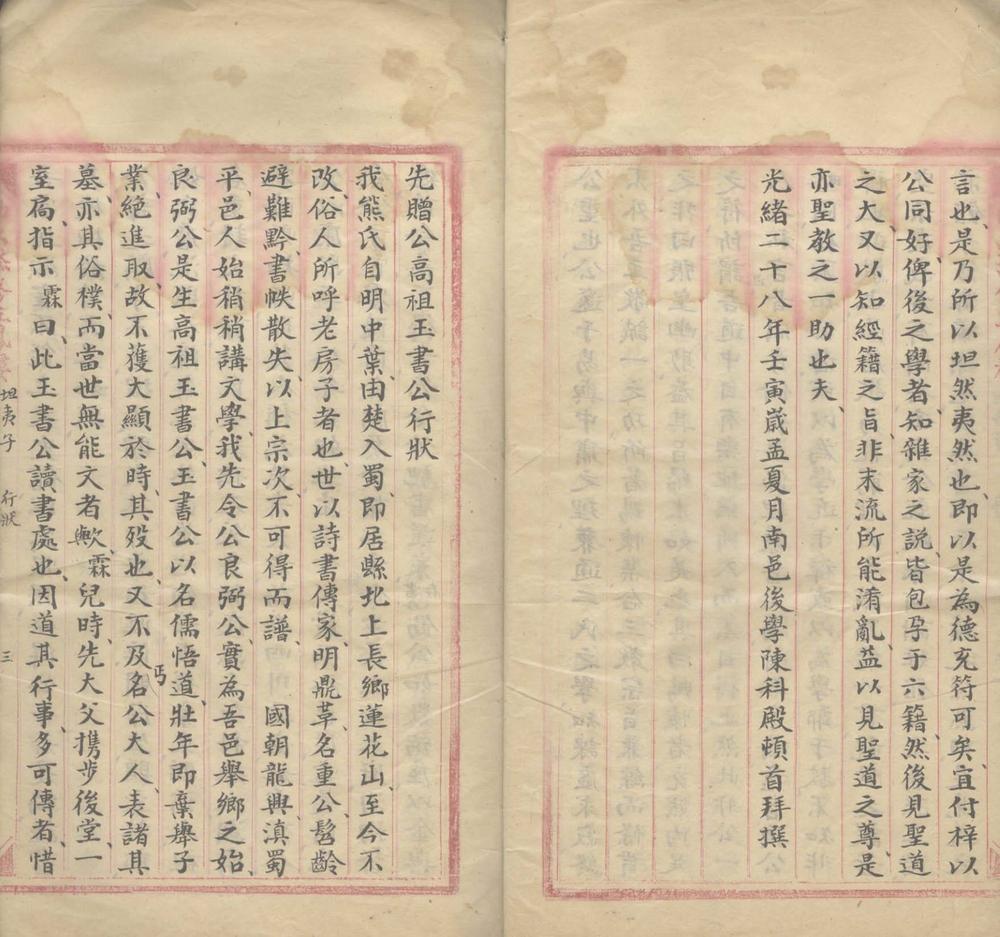 言也、是乃所以坦然夷然也、即以是為德充符可矣、宜付梓以
公同好、俾後之學者、知雜家之說、皆包孕于六籍、然後見聖道
之大、又以知經籍之旨、非末流所能淆亂、益以見聖道之尊、是
亦聖教之一助也夫、
光緒二十八年壬寅歲孟夏月南邑後學陳科殿頓首拜撰
先贈公高祖玉書公行狀
我熊氏自明中葉、由楚入蜀、即居縣北上長鄉蓮花山、至今不
改、俗人所呼老房子者也、世以詩書傳家、明鼎革、名重公、髫齡
避難黔、書帙散失、以上宗次不可得而譜、 國朝龍興、滇蜀
平、邑人始稍稍講文學、我先令公良弼公、實為吾邑舉鄉之始、
良弼公是生高祖玉書公、玉書公以名儒悟道、壯年即棄舉子
業、絕進取、故不獲大顯於時、其歿也、又不及丐名公大人、表諸其
墓、亦其俗樸、而當世無能文者歟、霖兒時、先大父攜步後堂一
室扃、指示霖曰、此玉書公讀書處也、因道其行事、多可傳者、惜
坦夷子 行狀 三